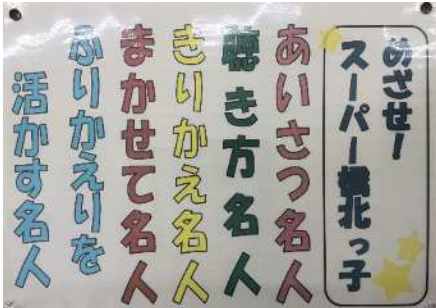 めざせ！
スーパー橋北っ子
あいさつ名人
聴き方名人
きりかえ名人
まかせて名人
ふりかえりを
活かす名人